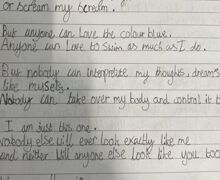 or scream my scream.
But anyone can Love the colour blue.
Anyone can Love to Swim as much as I do.
But nobody can interpretise my thoughts, dreams
like myself.
Nobody can take over my body and control it b
I am just this one.
Nobody else will ever look exactly like me
and neither will anyone else look like you too